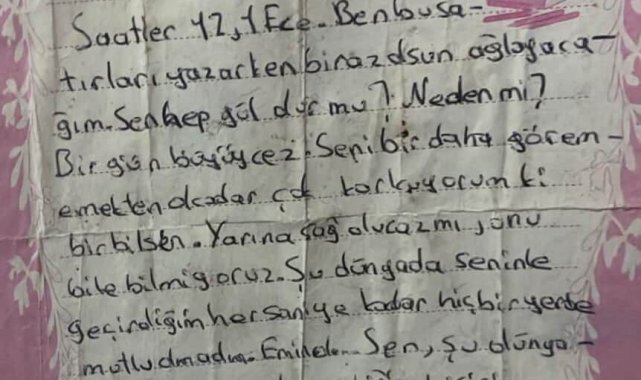 Saatler 12,1 Ece. Ben bu sa-
tırları yazarken biraz dsun ağlayaca-
ğım. Sen hep gül dur mu? Neden mi?
Bir gün büyüycez. Seni bir daha görem-
emekten okadar çok korkuyorum ki
bir bilsen. Yarına sağ olucazmı, onu
bile bilmiyoruz. Şu dünyada seninle
geçirdiğim her saniye kadar hiçbir yerde
mutlu olmadım. Emin ol. Sen, şu dünya-